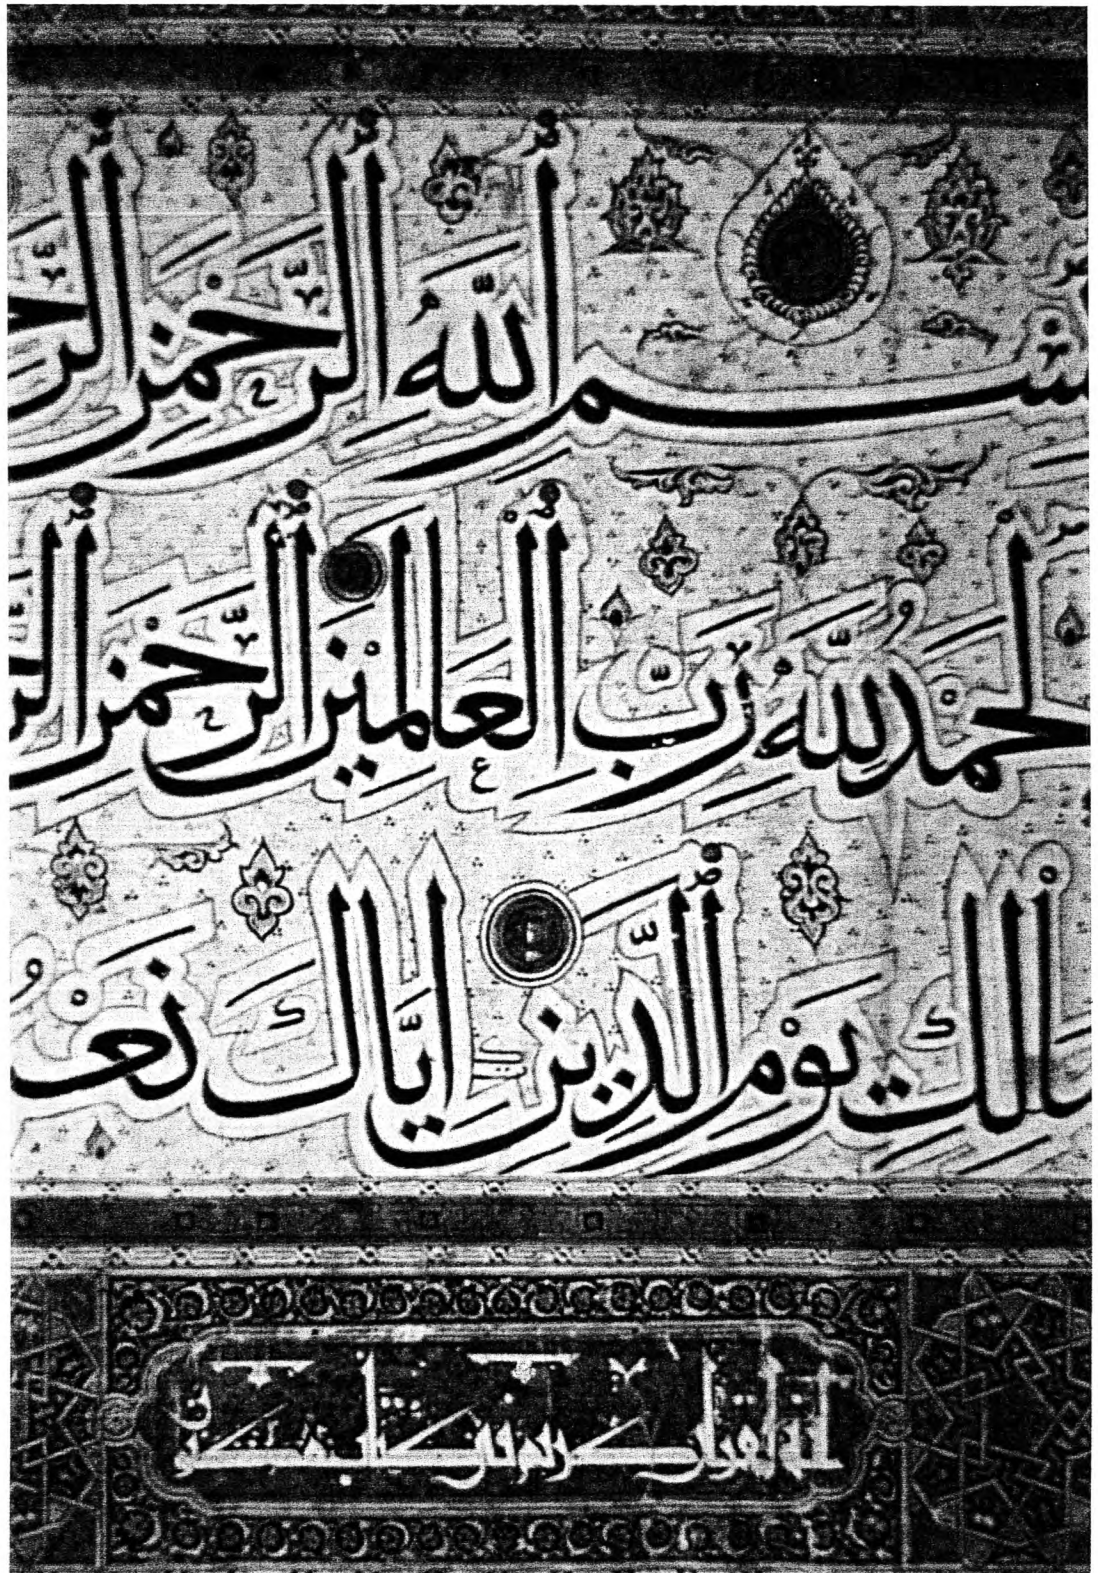 بِسْمِ اللَّهِ الرَّحْمٰنِ الرَّحـ
الْحَمْدُ لِلَّهِ رَبِّ الْعَالَمِينَ الرَّحْمٰنِ الر
مَالِكِ يَوْمِ الدِّينِ اِيَّاكَ نَعْـ
انه لقران كريم في كتاب مكنون